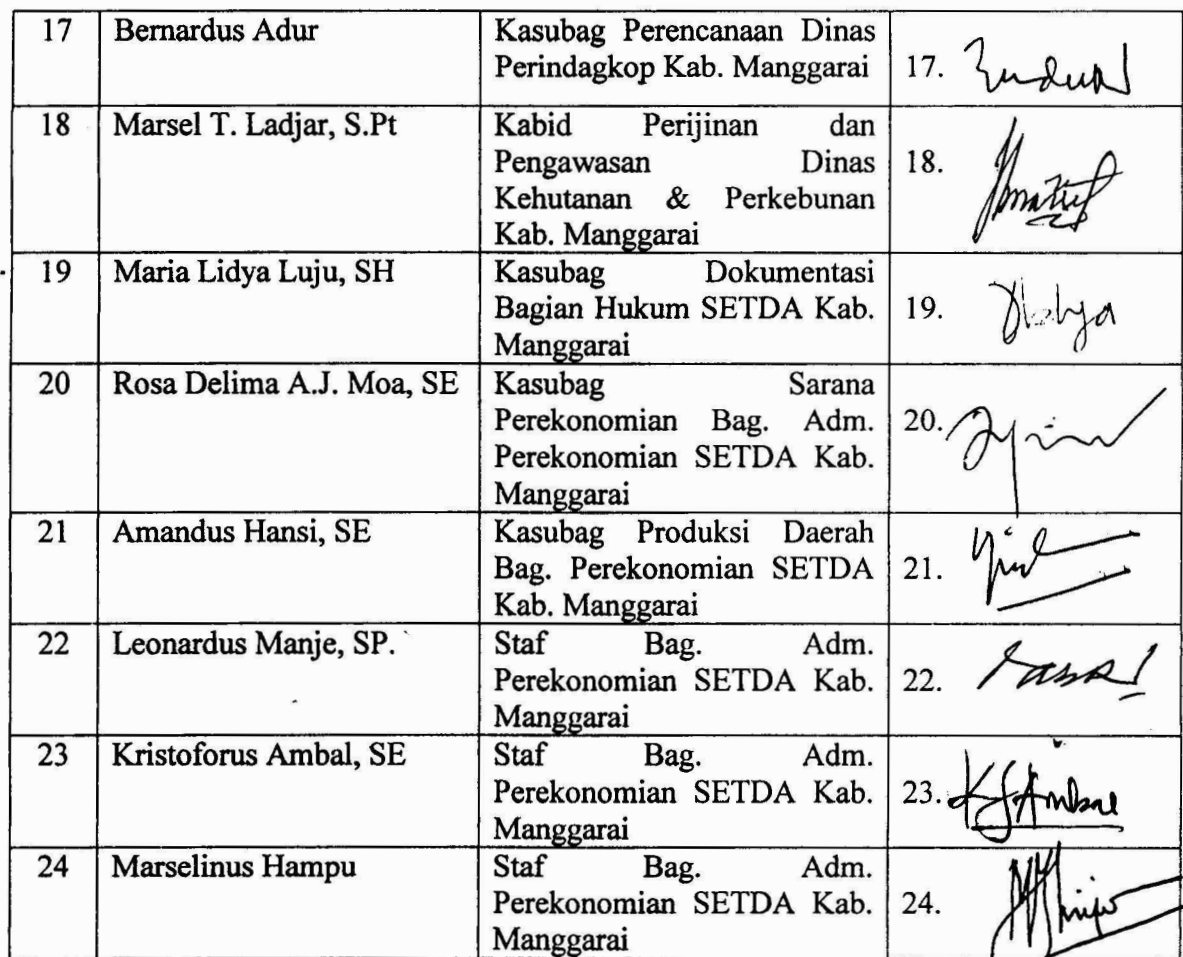 17 Bernardus Adur Kasubag Perencanaan Dinas
Perindagkop Kab. Manggarai 17.
18 Marsel T. Ladjar, S.Pt Kabid Perijinan dan
Pengawasan Dinas 18.
Kehutanan & Perkebunan
Kab. Manggarai
19 Maria Lidya Luju, SH Kasubag Dokumentasi
Bagian Hukum SETDA Kab. 19.
Manggarai
20 Rosa Delima A.J. Moa, SE Kasubag Sarana
Perekonomian Bag. Adm. 20.
Perekonomian SETDA Kab.
Manggarai
21 Amandus Hansi, SE Kasubag Produksi Daerah
Bag. Perekonomian SETDA 21.
Kab. Manggarai
22 Leonardus Manje, SP. Staf Bag. Adm.
Perekonomian SETDA Kab. 22.
Manggarai
23 Kristoforus Ambal, SE Staf Bag. Adm.
Perekonomian SETDA Kab. 23.
Manggarai
24 Marselinus Hampu Staf Bag. Adm.
Perekonomian SETDA Kab. 24.
Manggarai